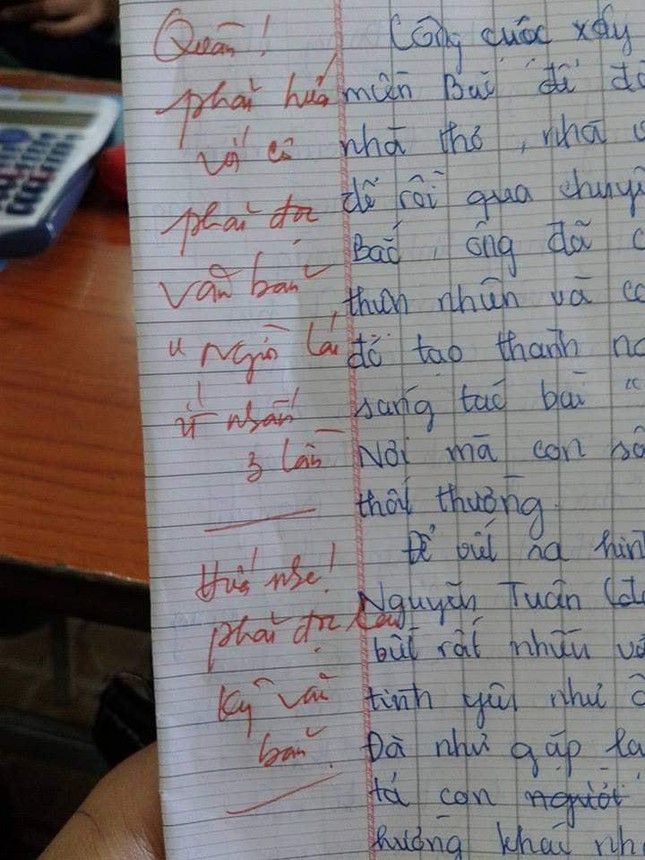 Quân!
phải hứa
với cô
phải đọc
văn bản
"Người lái
ít nhất
3 lần
Hứa nhé!
phải đọc
kỹ văn
bản.
Công cuộc xây
miền Bắc để
nhà thơ, nhà
để rồi qua
Bắc, ông đã
thiên nhiên và
đó tạo thành
sáng tác bài "
Nơi mà con
thôi thường.
Để viết ra
Nguyễn Tuân
bút rất nhiều
tình yêu như
Đà như gặp
tả con người
hướng khai